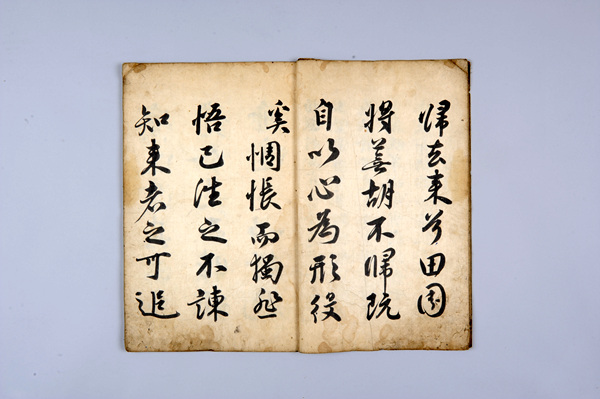 歸去来兮田園
将蕪胡不歸既
自以心為形役
奚惆悵而獨悲
悟已往之不諫
知来者之可追